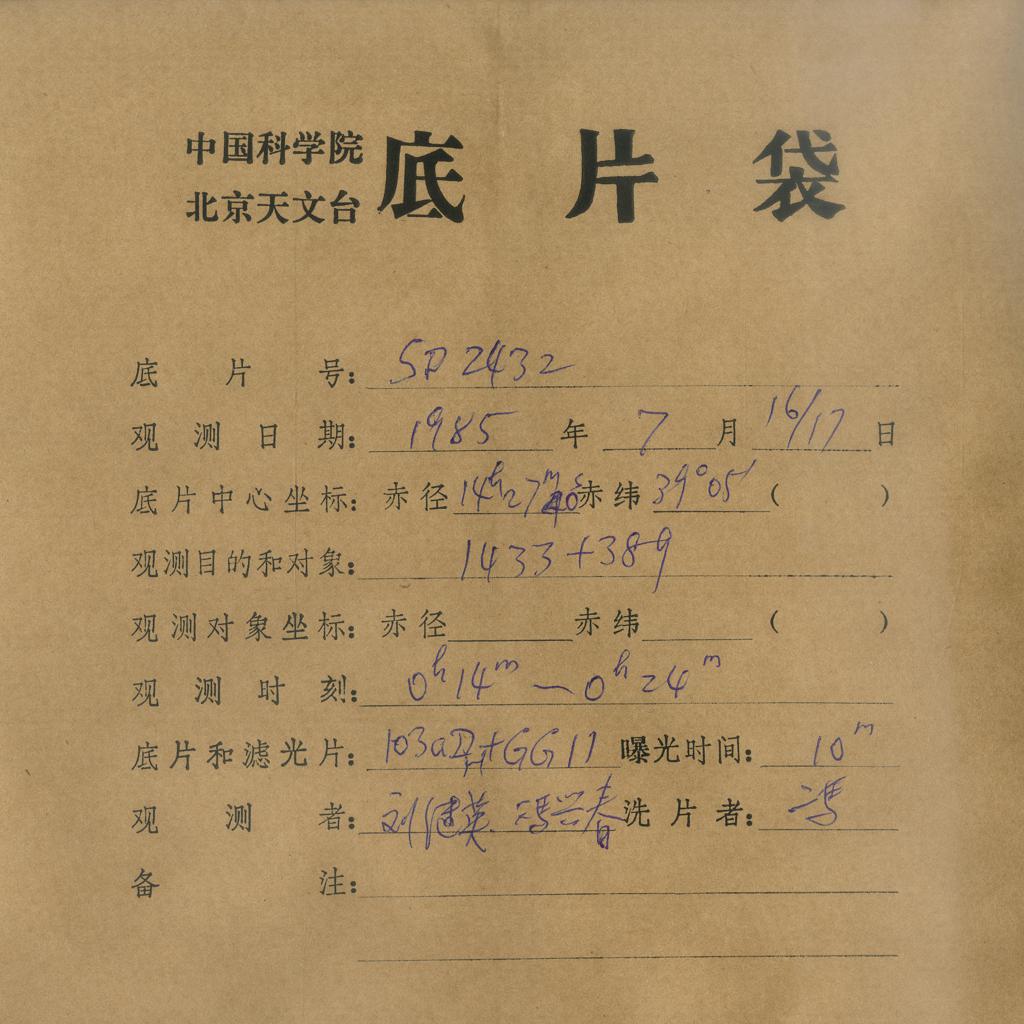 中国科学院
北京天文台
底片袋
底片号: SP 2432
观测日期: 1985 年 7 月 16/17 日
底片中心坐标: 赤径 14h27m40s 赤纬 39°05′ ( )
观测目的和对象: 1433+389
观测对象坐标: 赤径 赤纬 ( )
观测时刻: 0h14m — 0h24m
底片和滤光片: 103aD+GG11 曝光时间: 10m
观测者: 刘健英 冯兴春 洗片者: 冯
备注: